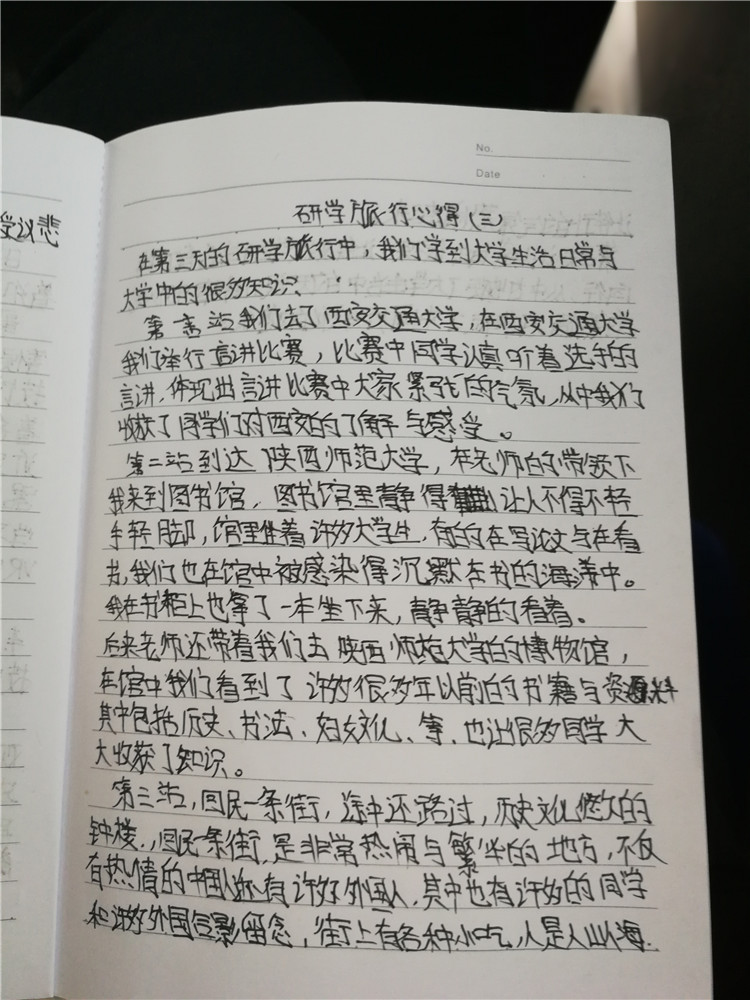 受议悲
No.
Date
研学旅行心得(三)
在第三天的研学旅行中,我们学到大学生活日常与
大学中的很多知识、
第一站我们去了西安交通大学,在西安交通大学
我们举行言讲比赛,比赛中同学认真听着选手的
言讲,体现出言讲比赛中大家紧张的气氛,从中我们
收获了同学们对西安的了解与感受。
第二站到达陕西师范大学,在老师的带领下
我来到图书馆,图书馆里静得让人不得不轻
手轻脚,馆里坐着许多大学生,有的在写论文与在看
书,我们也在馆中被感染得沉默在书的海洋中。
我在书柜上也拿了一本坐下来,静静的看着。
后来老师还带着我们去陕西师范大学的博物馆,
在馆中我们看到了许多很多年以前的书籍与资料
其中包括历史、书法、妇女文化、等、也让很多同学大
大收获了知识。
第三站,回民一条街,途中还路过,历史文化悠久的
钟楼,,回民一条街,是非常热闹与繁华的地方,不仅
有热情的中国人还有许多外国人,其中也有许多的同学
和许多外国合影留念,街上有各种小吃,人是人山人海.